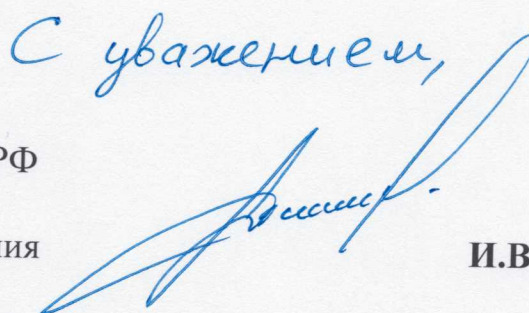 С уважением,
РФ
ния
И.В